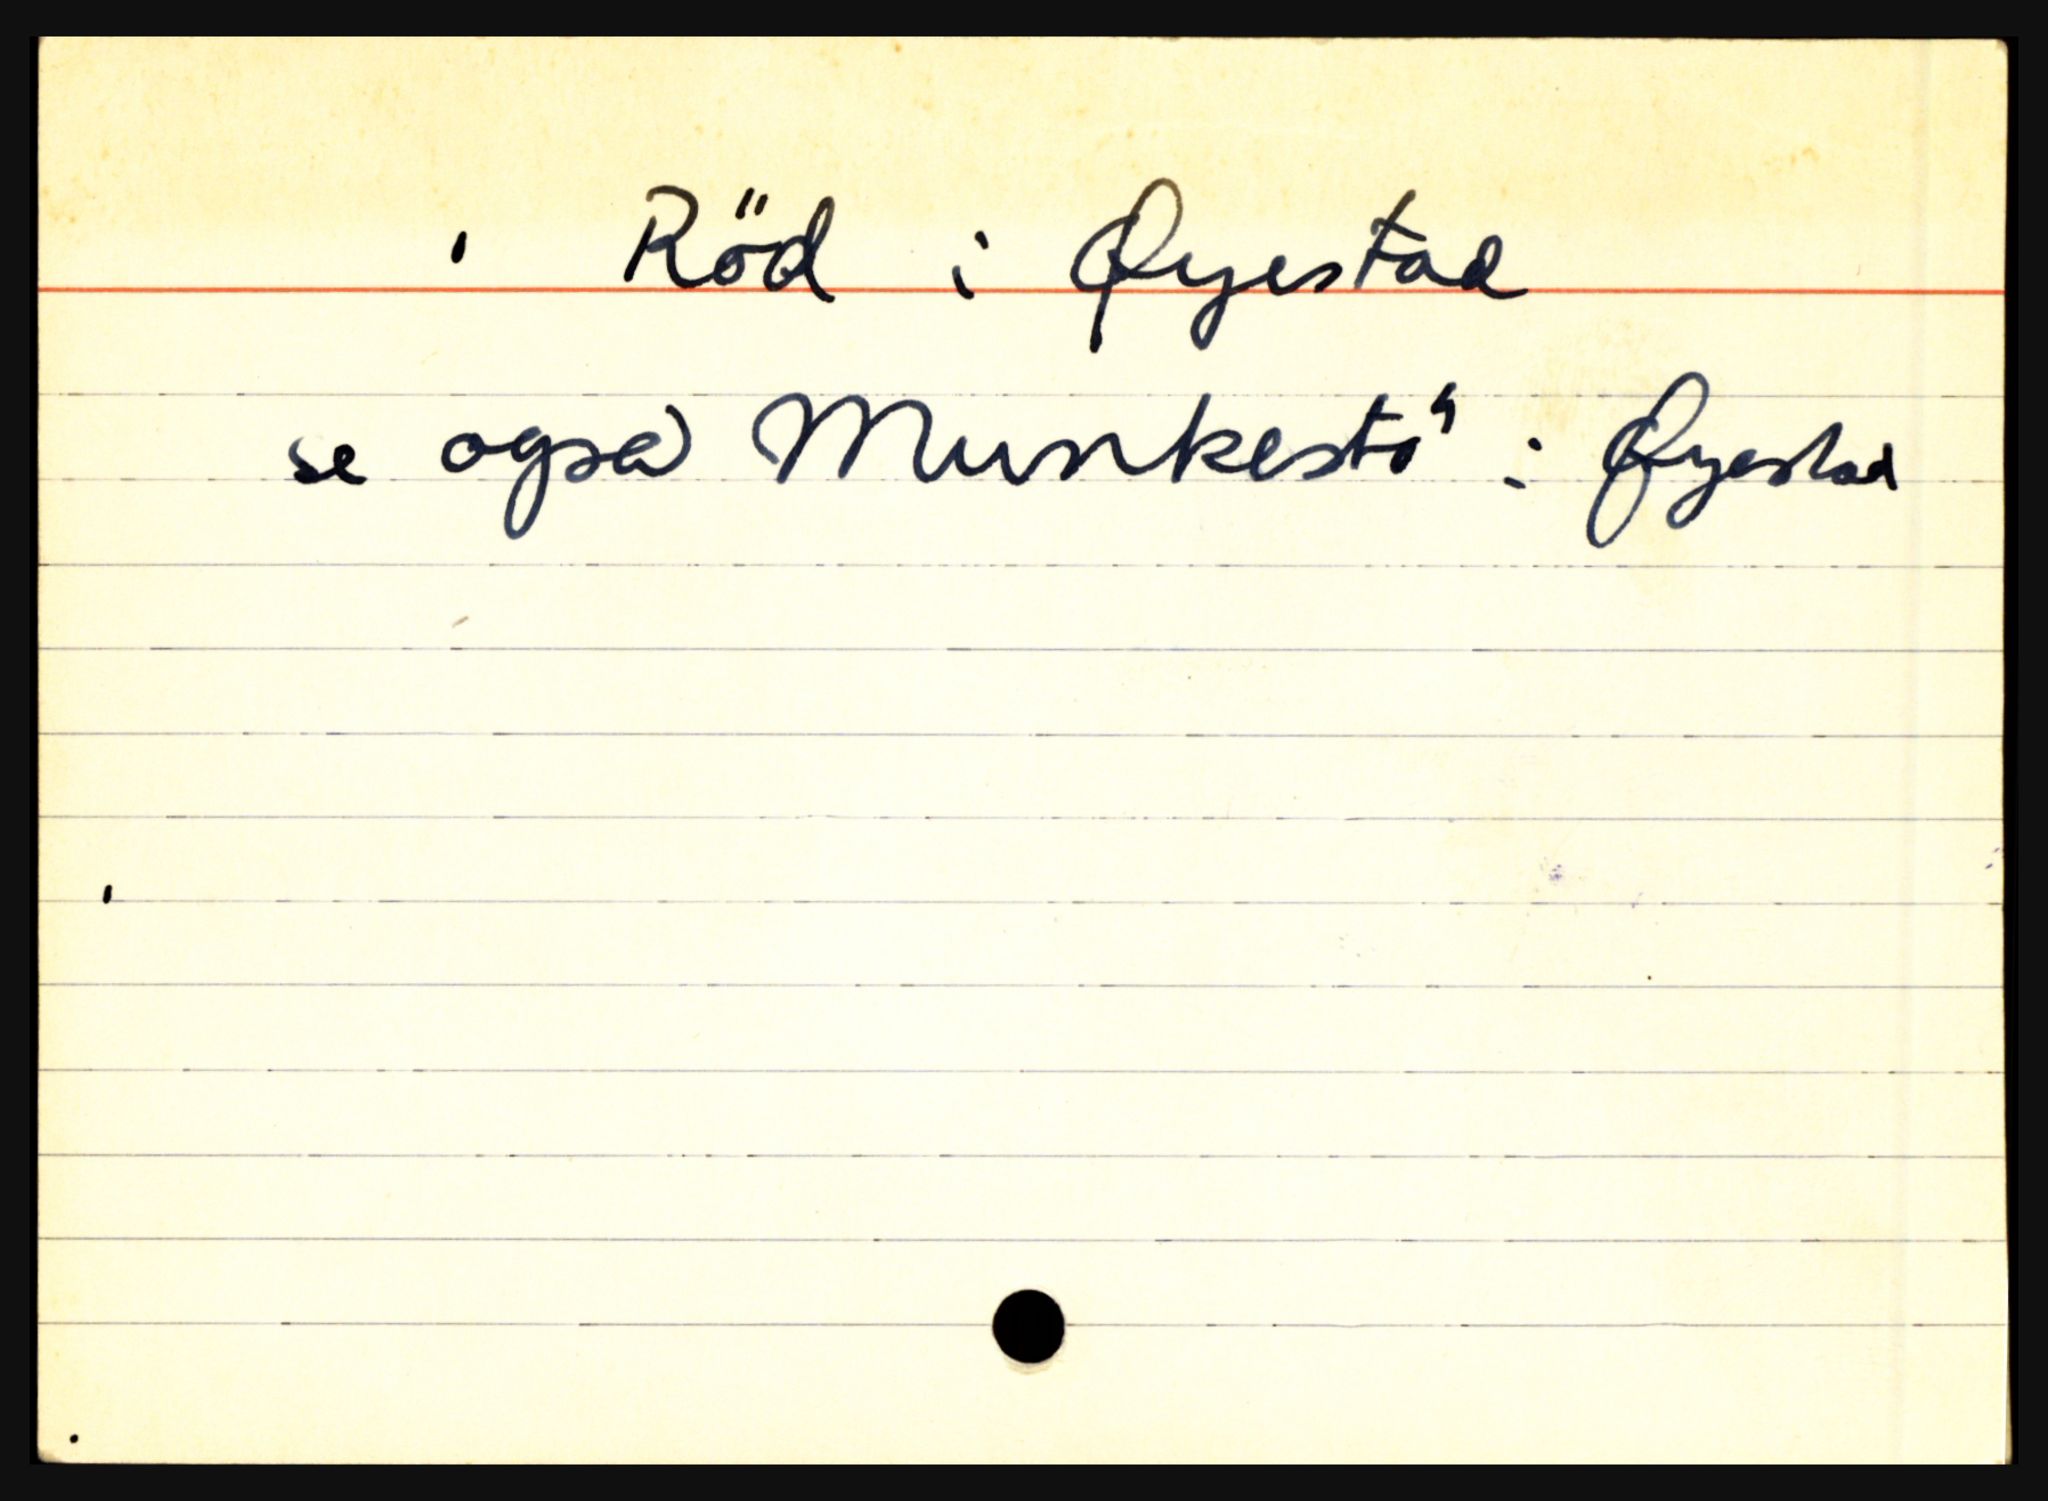 Röd i Øyestad
se også Munkestö i Øyestad